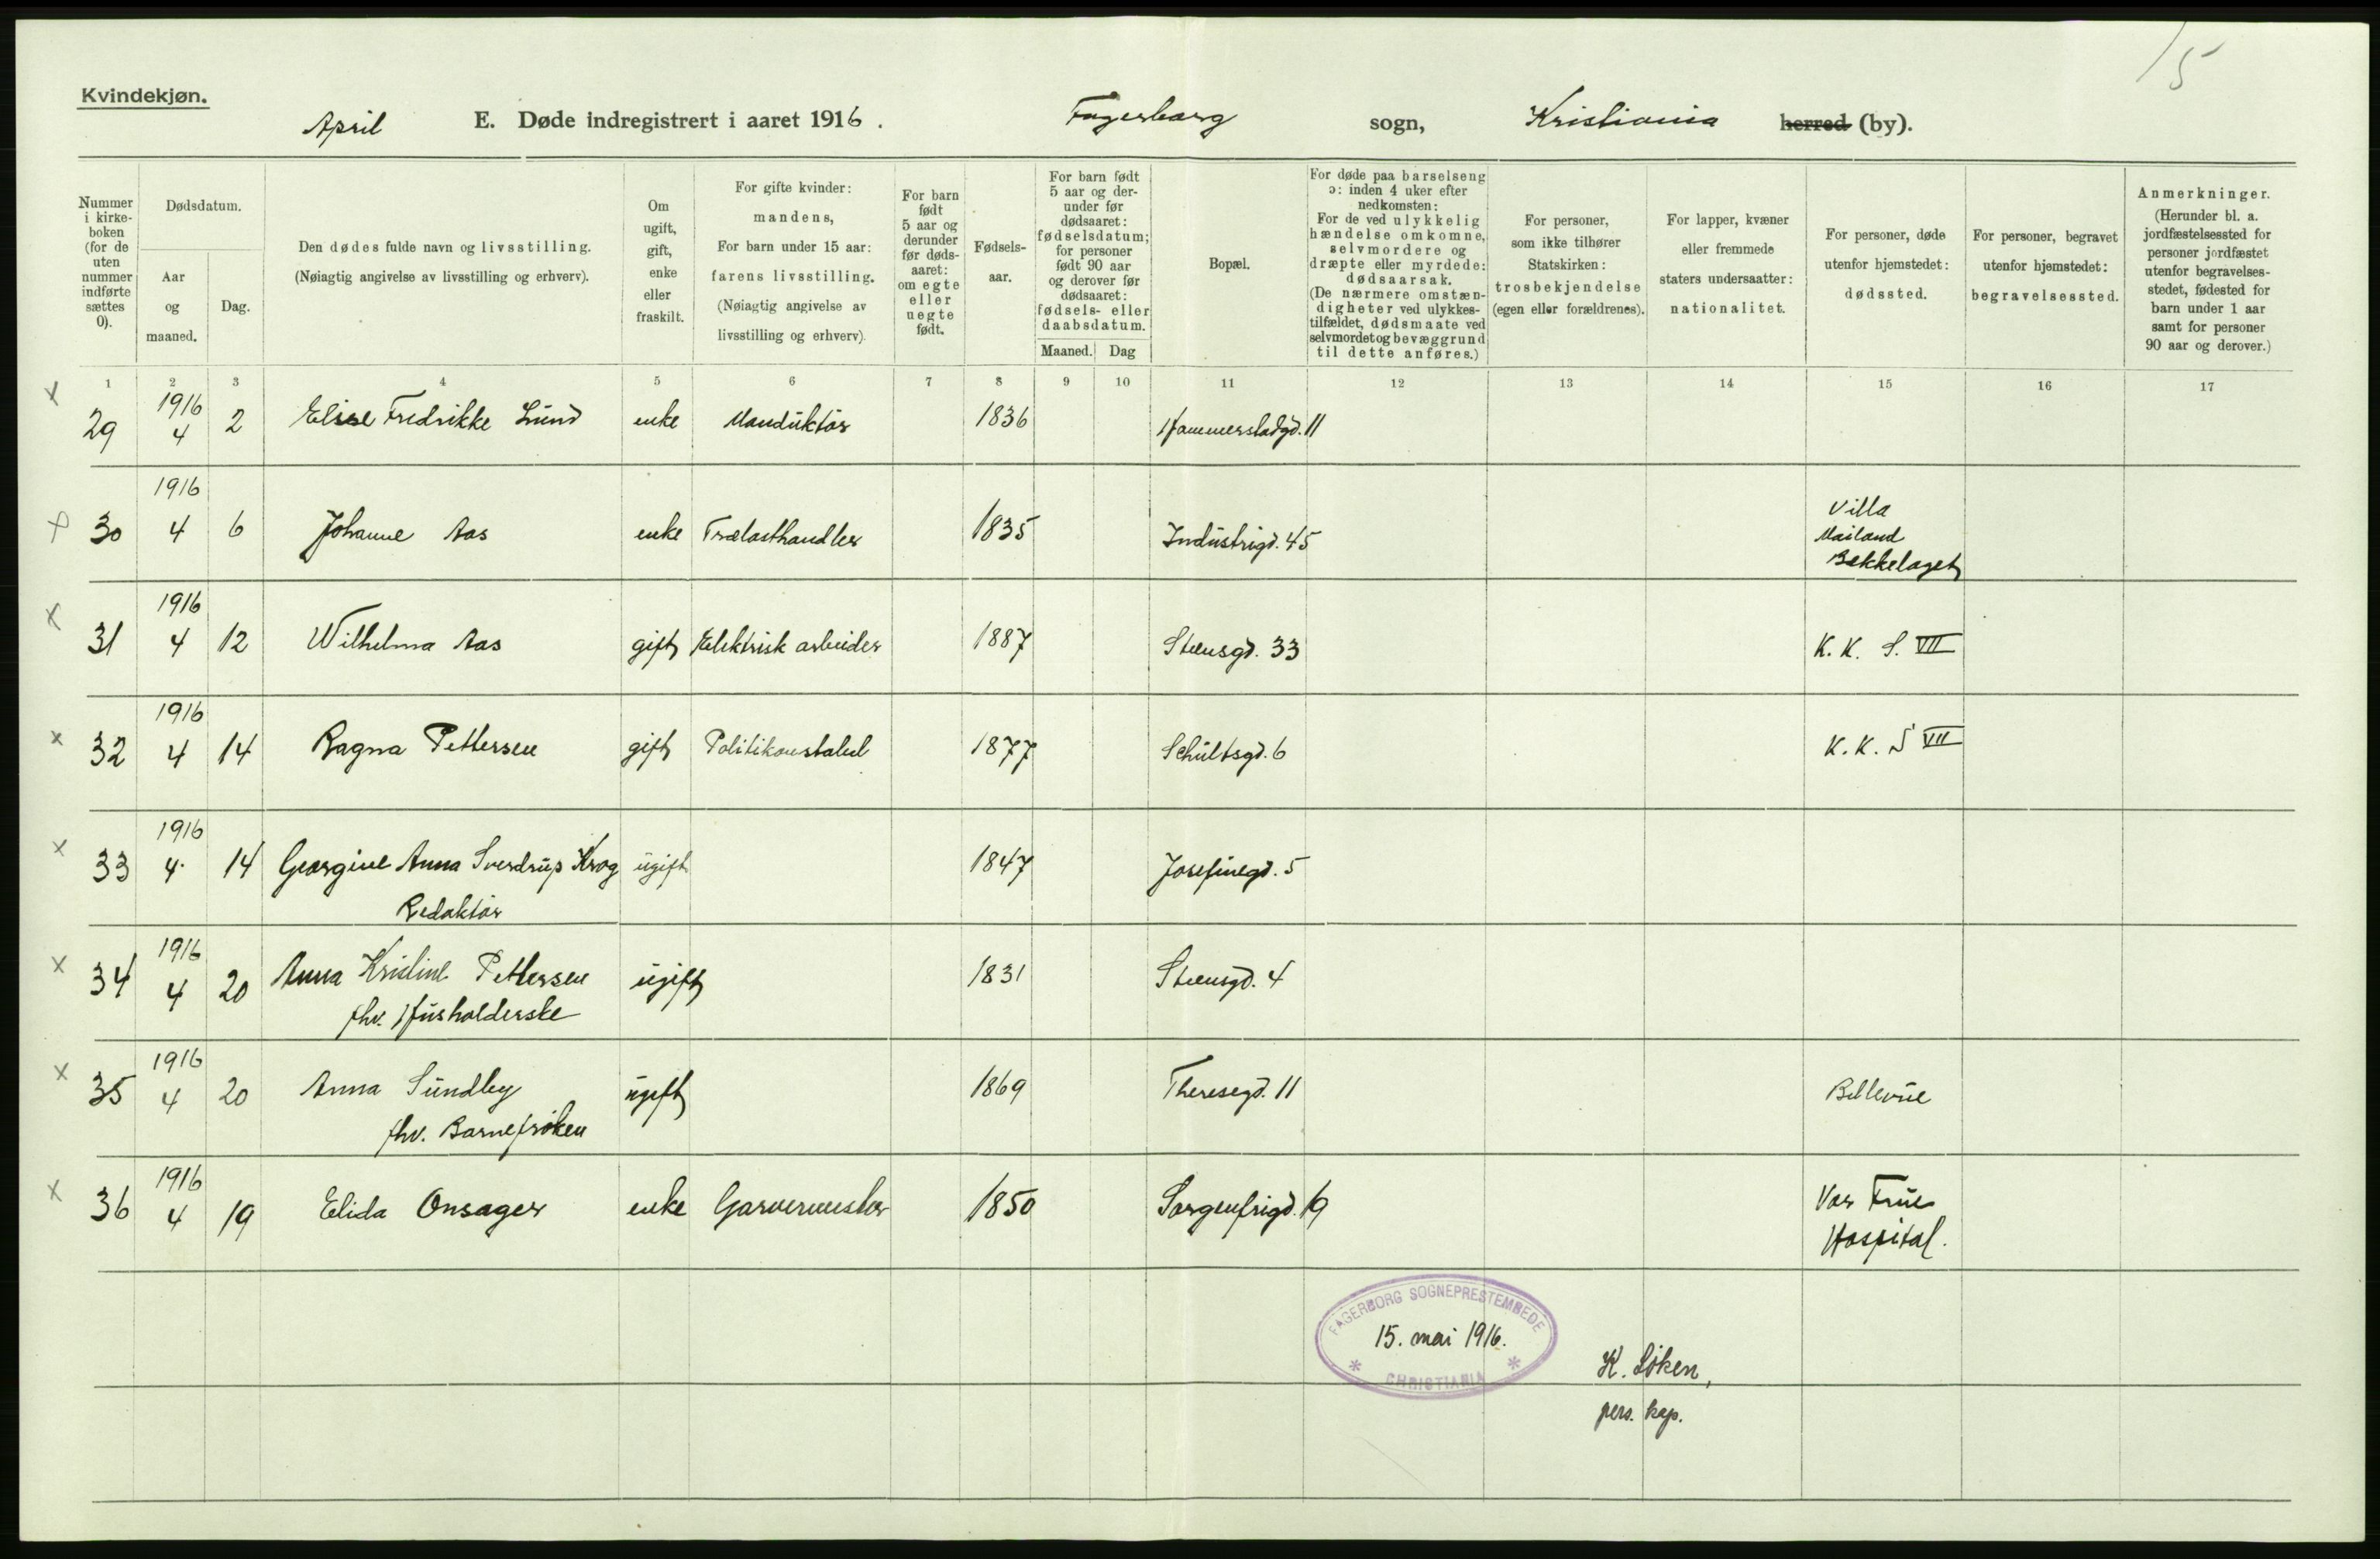 15
Kvindekjøn.
April E. Døde indregistrert i aaret 1916. Fagerborg sogn, Kristiania herred (by).
Nummer i kirke-boken (for de uten nummer indførte sættes 0).
Dødsdatum.
Aar og maaned.
Dag.
Den dødes fulde navn og livsstilling.
(Nøiagtig angivelse av livsstilling og erhverv).
Om ugift, gift, enke eller fraskilt.
For gifte kvinder:
mandens,
For barn under 15 aar:
farens livsstilling.
(Nøiagtig angivelse av
livsstilling og erhverv).
For barn født 5 aar og derunder før døds-aaret: om egte eller uegte født.
Fødsels-aar.
For barn født 5 aar og der-under før dødsaaret: fødselsdatum; for personer født 90 aar og derover før dødsaaret: fødsels- eller daabsdatum.
Maaned. Dag
Bopæl.
For døde paa barselseng ɔ: inden 4 uker efter nedkomsten:
For de ved ulykkelig hændelse omkomne, selvmordere og dræpte eller myrdede: dødsaarsak.
(De nærmere omstæn-digheter ved ulykkes-tilfældet, dødsmaate ved selvmordet og bevæggrund til dette anføres.)
For personer, som ikke tilhører Statskirken: trosbekjendelse (egen eller forældrenes).
For lapper, kvæner eller fremmede staters undersaatter: nationalitet.
For personer, døde utenfor hjemstedet: dødssted.
For personer, begravet utenfor hjemstedet: begravelsessted.
Anmerkninger.
(Herunder bl. a. jordfæstelsessted for personer jordfæstet utenfor begravelses-stedet, fødested for barn under 1 aar samt for personer 90 aar og derover.)
1 2 3 4 5 6 7 8 9 10 11 12 13 14 15 16 17
x 29 1916 4 2 Elise Fredrikke Lund enke Manduktør 1836 Hammerstadgd. 11
x 30 1916 4 6 Johanne Aas enke Trælasthandler 1835 Industrigd. 45 Villa Mailand Bekkelaget
x 31 1916 4 12 Wilhelma Aas gift Elektrisk arbeider 1887 Steensgd. 33 K. K. S. VII
x 32 1916 4 14 Ragna Pettersen gift Politikonstabel 1877 Schultsgd. 6 K. K. S VII
x 33 1916 4 14 Georgine Anna Sverdrup Krog ugift 1847 Josefinegd. 5
Redaktør
x 34 1916 4 20 Anna Kristine Pettersen ugift 1831 Steensgd. 4
fhv. Husholderske
x 35 1916 4 20 Anna Sundby ugift 1869 Theresegd. 11 Bellevue
fhv. Barnefrøken
x 36 1916 4 19 Elida Onsager enke Garvermester 1850 Sorgenfrigd. 19 Vor Frues Hospital.
FAGERBORG SOGNEPRESTEMBEDE
15. mai 1916.
* CHRISTIANIA *
K. Løken,
pers. kap.